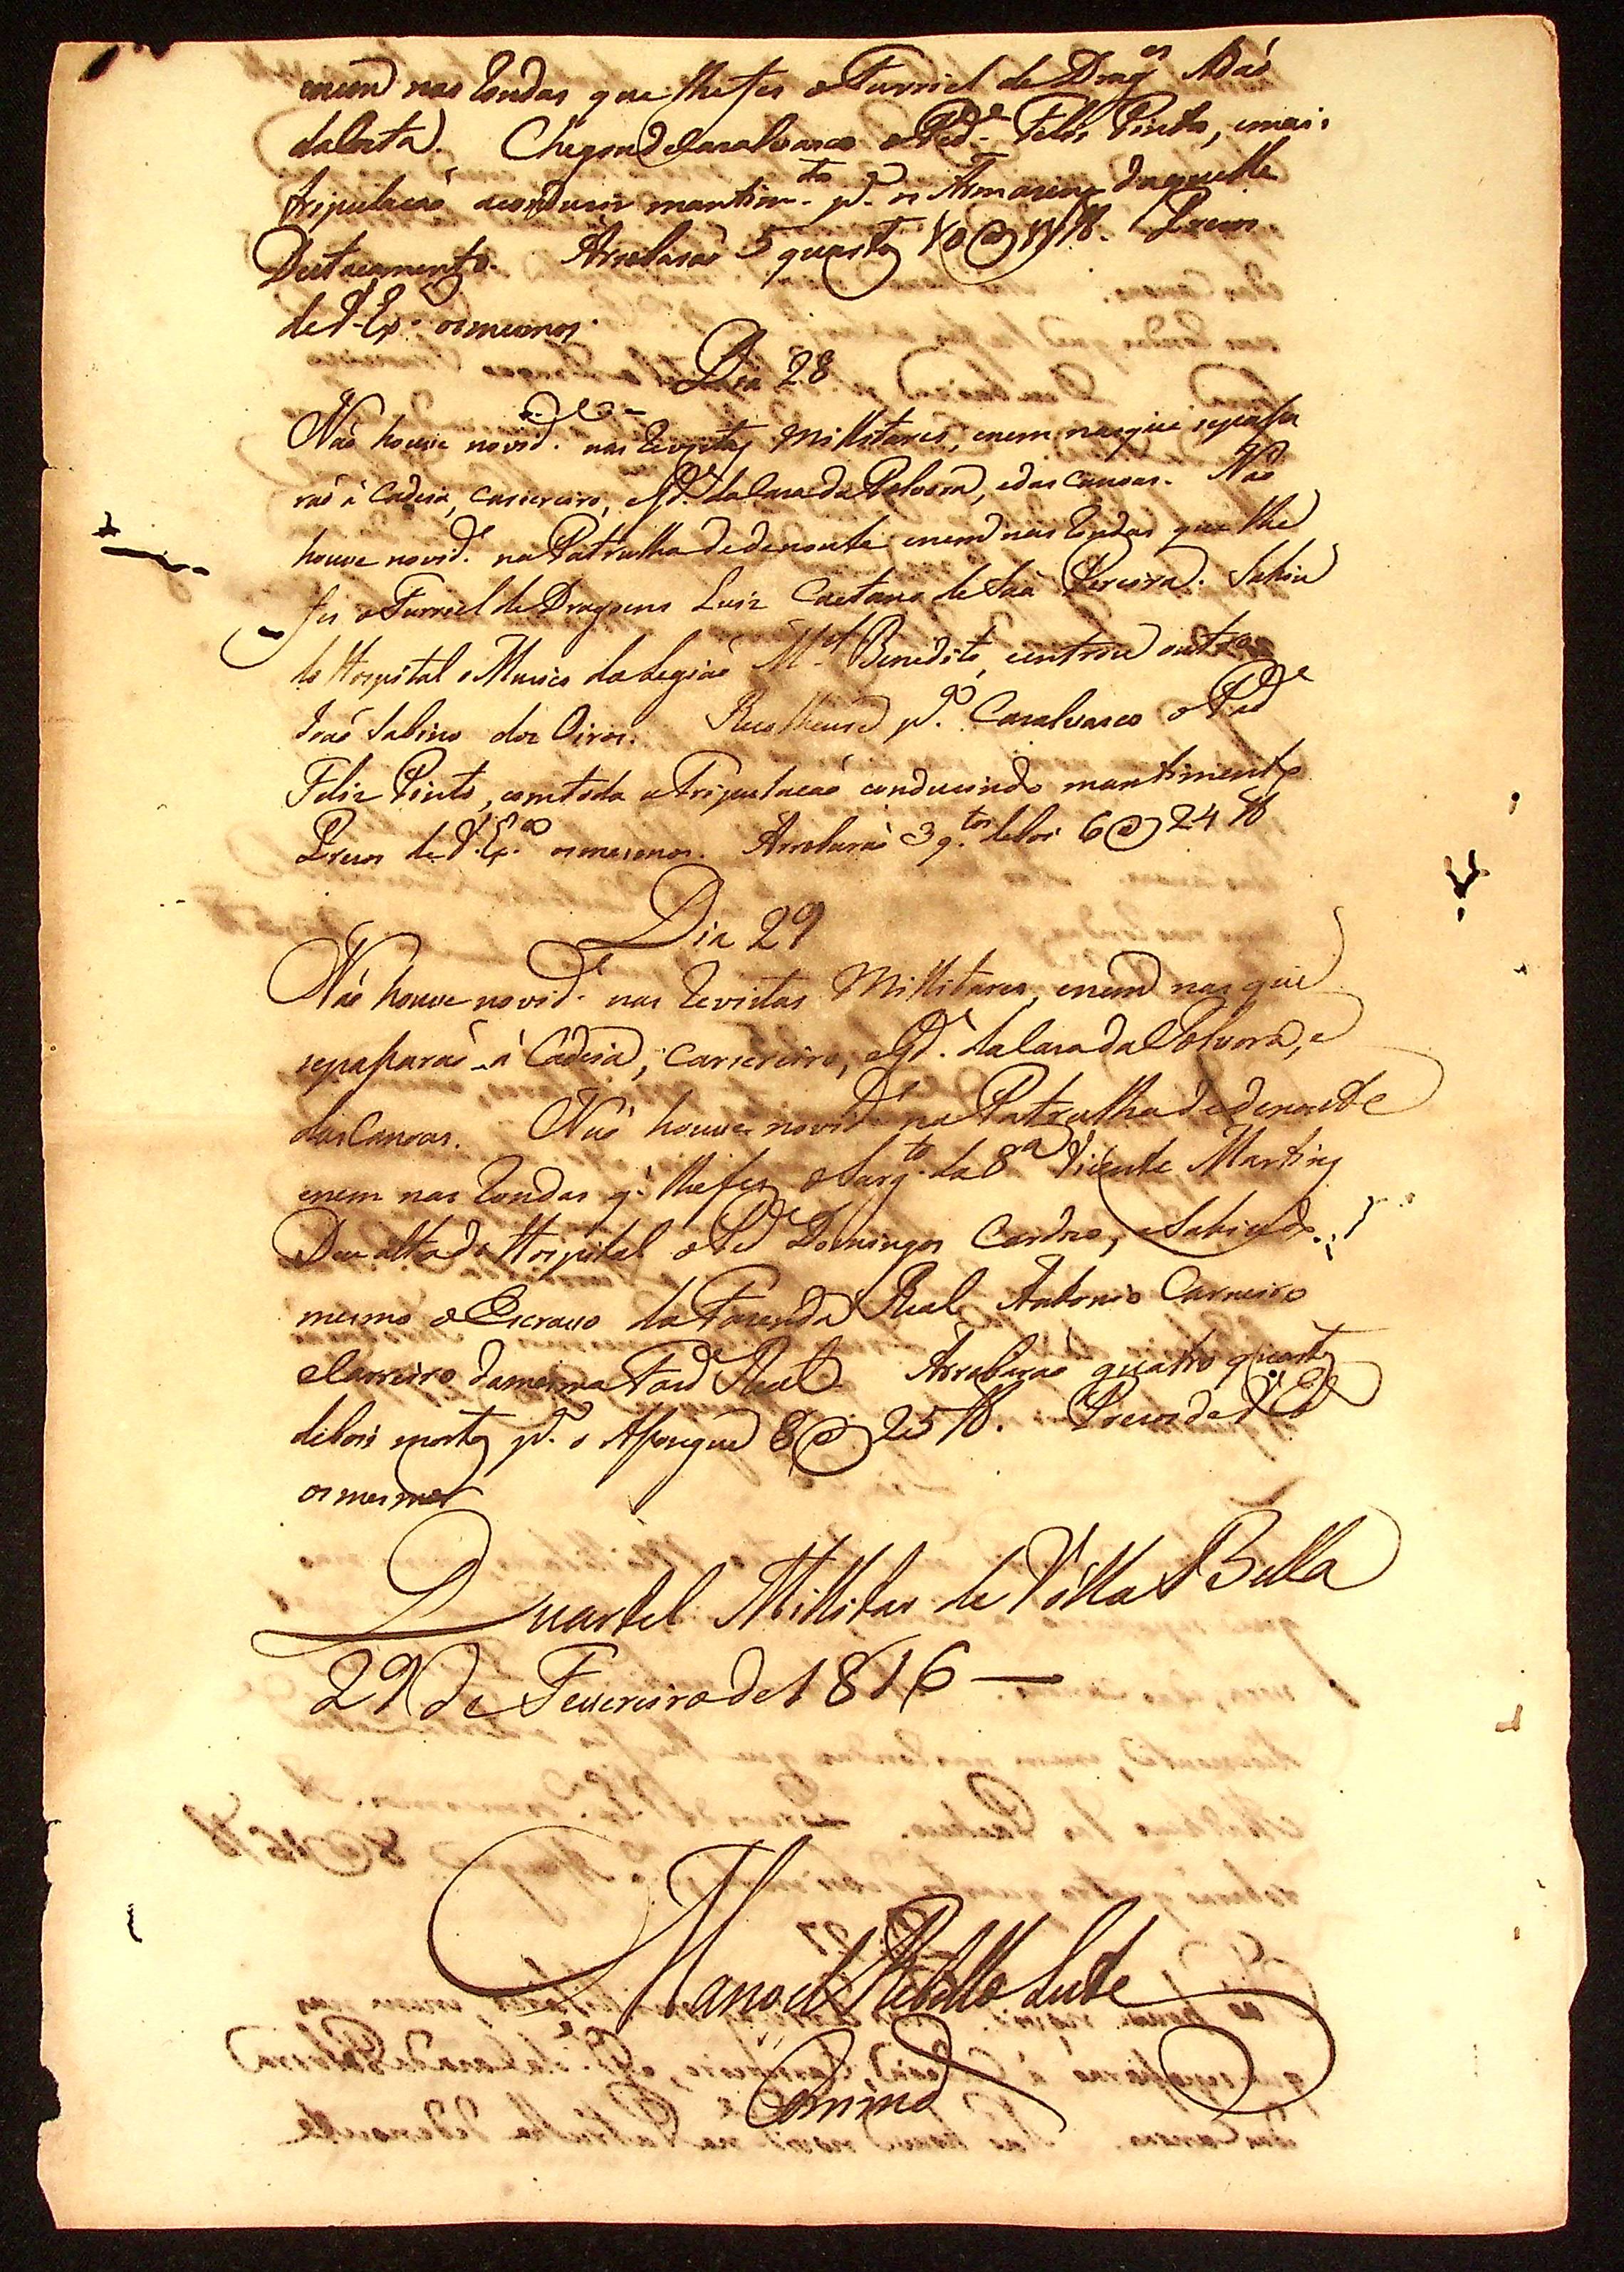 enem nas Rondas que lhe fes o Furriel de Drag.es Adaõ
da Costa. Chegou de Casalvasco o Ped.e Felis Pinto, e mais
tripulacaõ a conduzir mantim.to p.a os Armazens daquelle
Destacamento. Arrobaraõ 5 quartos 10 @ 11 lb. Prezos
de V. Ex.a os mesmos.
Dia 28
Naõ houve novid.e nas Revistas Millitares, enem nas que sepassa
raõ á Cadeia, Carsereiro, e G.da da Casa da Polvora, e das Canoas. Naõ
houve novid.e na Patrulha de denoute enem nas Rondas que lhe
fes o Furriel de Dragoens Luiz Caetano de Saá Pereira. Sahiu
do Hospital o Musico da Legiaõ M.el Benedito, e entrou outro
Joaõ Sabino dos Oiros. Recolheuse p.a Casalvasco o Ped.e
Feliz Pinto, com toda a Tripulacaõ conduzindo mantimentos
Prezos de V. Ex.a os mesmos. Arrobaraõ 3 q.tos de boi 6 @ 24 lb
Dia 29
Naõ houve novid.e nas Revistas Millitares, enem nas que
sepassaraõ á Cadeia, Carsereiro, e G.da da Casa da Polvora, e
das Canoas. Naõ houve novid.e na Patrulha de denoute
enem nas Rondas q. lhe fes o Sarg.to da 8.a Vicente Martins
Deu alta do Hospital o Ped.e Domingos Cardozo, e Sahiu do
mesmo o Escravo da Fazenda Real Antonio Carneiro
e Carreiro da mesma Fazd.a Real. Arrobaraõ quatro quartos
de bois mortos p.a o Asougue 8 @ 25 lb. Prezos de V. Ex.a
os mesmos
Quartel Millitar de Villa Bella
29 de Feuereiro de 1816
Manoel Rebello Leite
Com.e